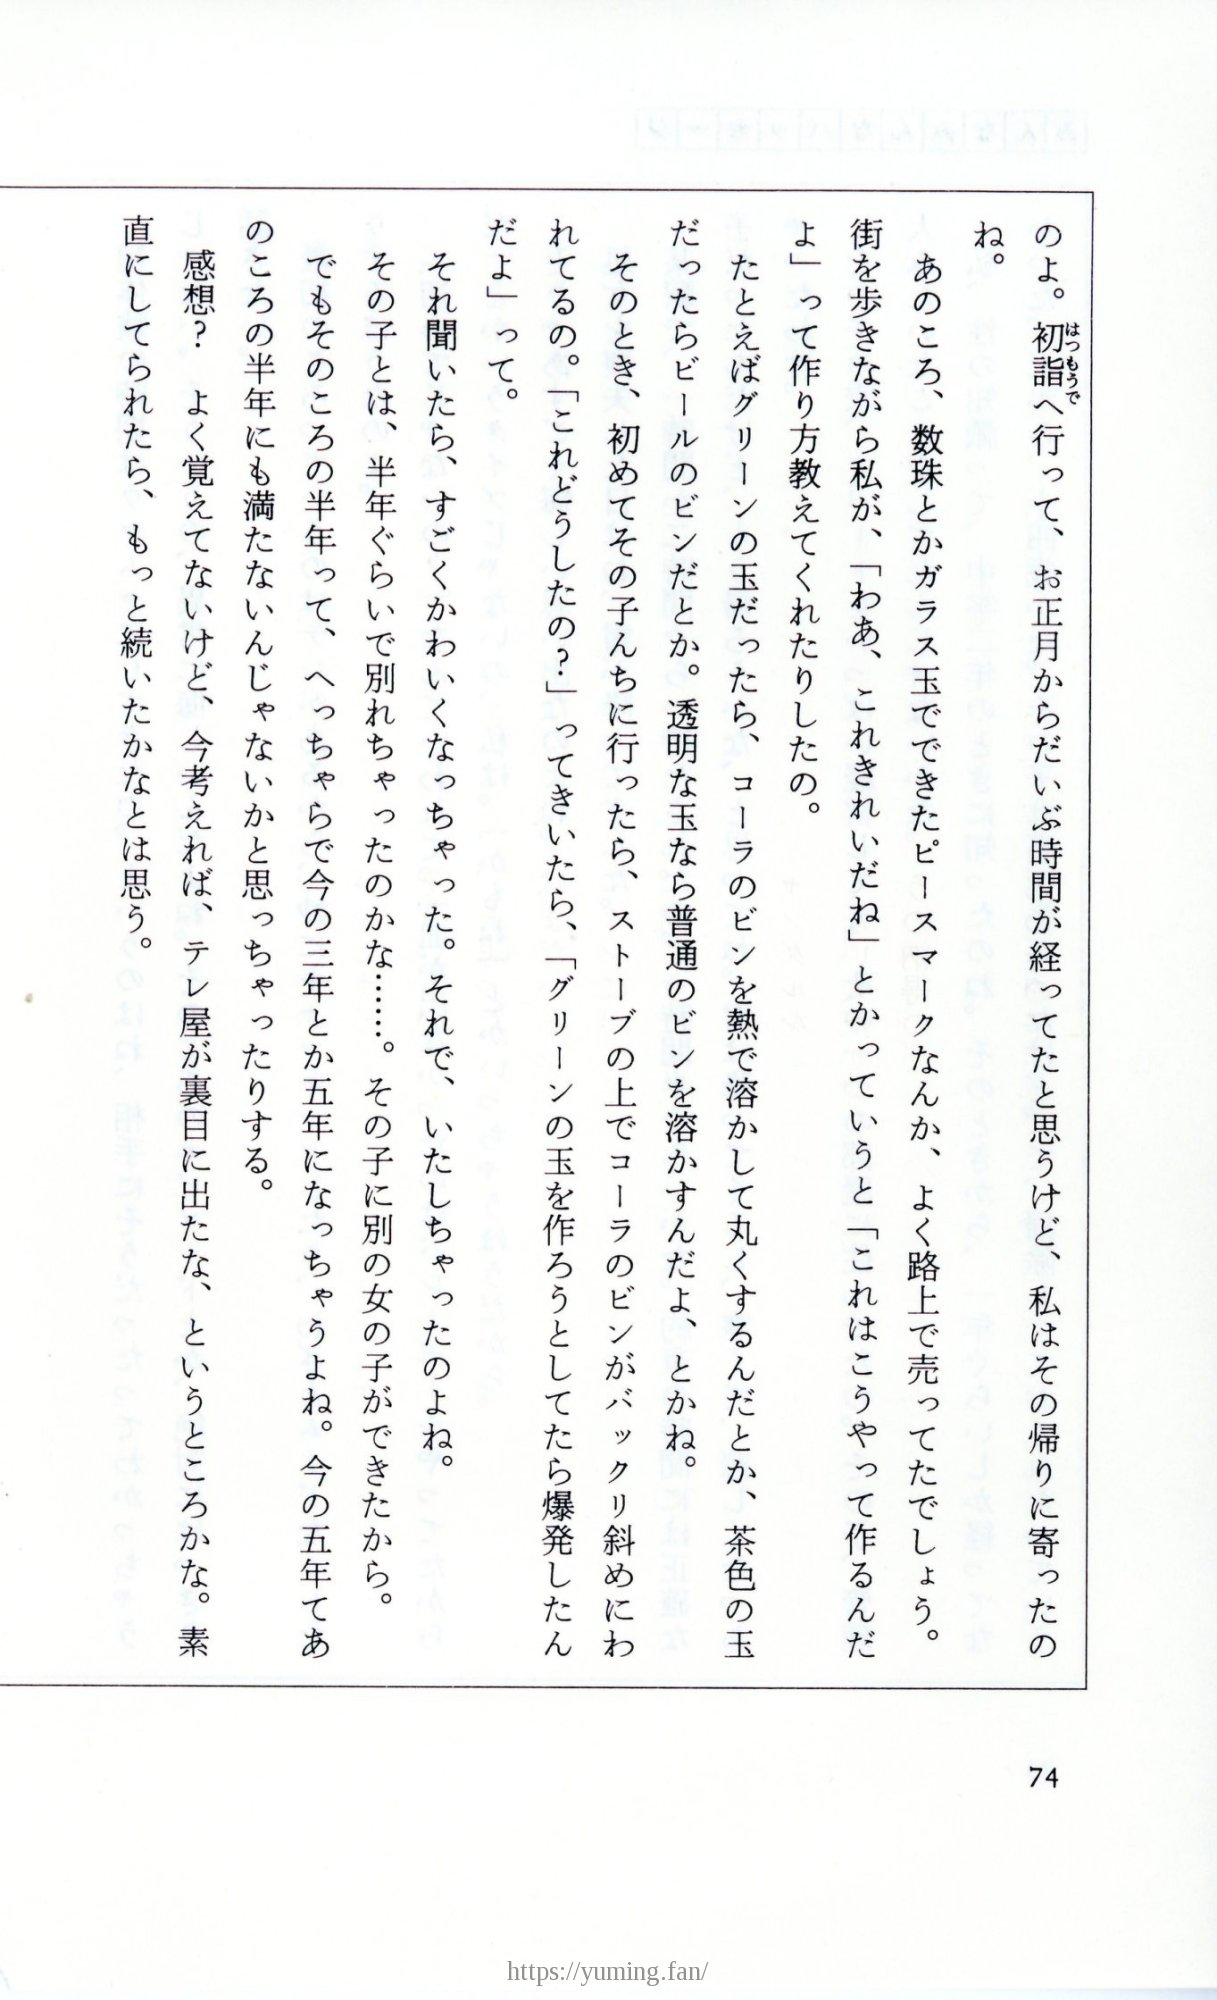 のよ。初詣へ行って、お正月からだいぶ時間が経ってたと思うけど、私はその帰りに寄ったの
はつもうで
ね。
あのころ、数珠とかガラス玉でできたピースマークなんか、よく路上で売ってたでしょう。
街を歩きながら私が、「わあ、これきれいだね」とかっていうと「これはこうやって作るんだ
よ」って作り方教えてくれたりしたの。
たとえばグリーンの玉だったら、コーラのビンを熱で溶かして丸くするんだとか、茶色の玉
だったらビールのビンだとか。透明な玉なら普通のビンを溶かすんだよ、とかね。
そのとき、初めてその子んちに行ったら、ストーブの上でコーラのビンがバックリ斜めにわ
れてるの。「これどうしたの?」ってきいたら、「グリーンの玉を作ろうとしてたら爆発したん
だよ」って。
それ聞いたら、すごくかわいくなっちゃった。それで、いたしちゃったのよね。
その子とは、半年ぐらいで別れちゃったのかな……。その子に別の女の子ができたから。
でもそのころの半年って、へっちゃらで今の三年とか五年になっちゃうよね。今の五年てあ
のころの半年にも満たないんじゃないかと思っちゃったりする。
感想? よく覚えてないけど、今考えれば、テレ屋が裏目に出たな、というところかな。素
直にしてられたら、もっと続いたかなとは思う。
74
https://yuming.fan/